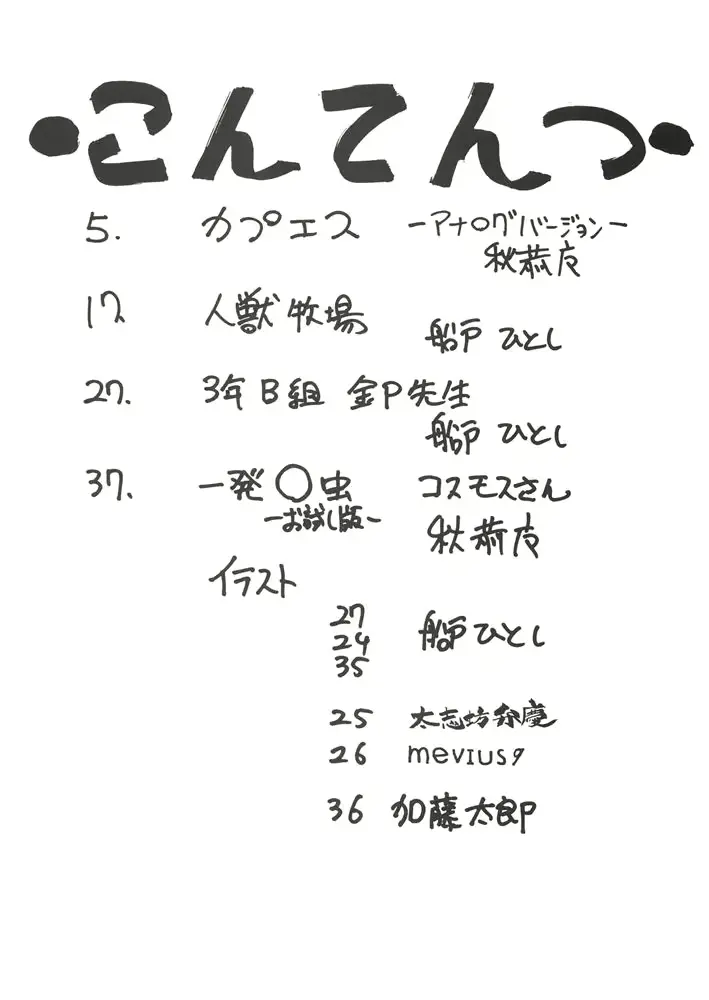 ・こんてんつ・
5. カプエス －アナログバージョン－
秋恭応
17. 人獣牧場
船戸 ひとし
27. 3年B組 金P先生
船戸 ひとし
37. 一発〇虫 コスモスさん
－お試し版－
秋恭応
イラスト
27
24 船戸 ひとし
35
25 太志坊弁慶
26 mevius9
36 加藤太郎